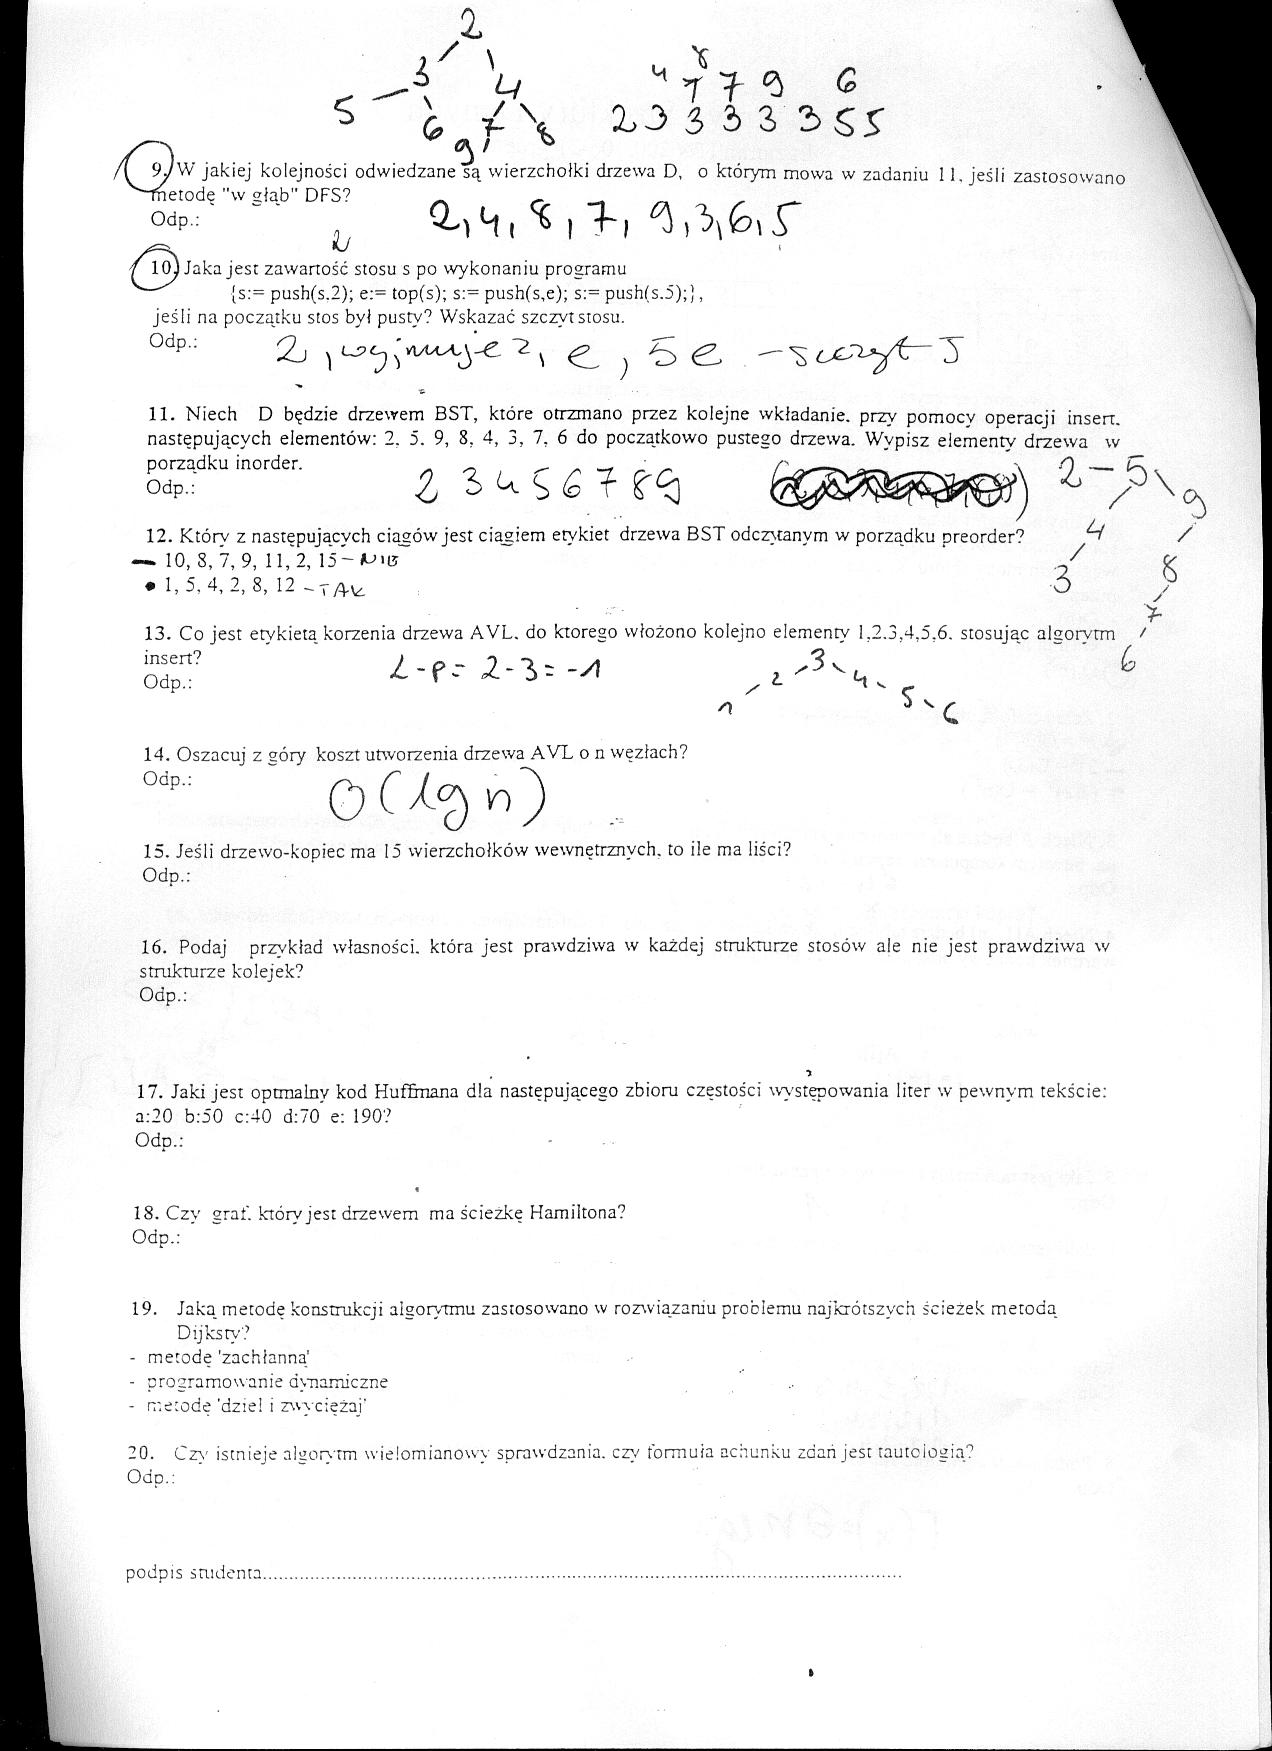 2
3 4
5 6 7 8
9
4 8 7 7 9 6
2 3 3 3 3 3 5 5
9. W jakiej kolejności odwiedzane są wierzchołki drzewa D, o którym mowa w zadaniu 11. jeśli zastosowano
metodę "w głąb" DFS?
Odp.: 2, 4, 8, 7, 9, 3, 6, 5
2
10. Jaka jest zawartość stosu s po wykonaniu programu
{s:= push(s.2); e:= top(s); s:= push(s,e); s:= push(s.5);},
jeśli na początku stos był pusty? Wskazać szczyt stosu.
Odp.: 2, wyjmuje 2, e, 5 e - szczyt 5
11. Niech D będzie drzewem BST, które otrzmano przez kolejne wkładanie. przy pomocy operacji insert.
następujących elementów: 2, 5. 9, 8, 4, 3, 7, 6 do początkowo pustego drzewa. Wypisz elementy drzewa w
porządku inorder.
Odp.: 2 3 4 5 6 7 8 9
2 - 5 9
4 8
3 7
6
12. Który z następujących ciągów jest ciągiem etykiet drzewa BST odczytanym w porządku preorder?
- 10, 8, 7, 9, 11, 2, 15 - NIE
• 1, 5, 4, 2, 8, 12 - TAK
13. Co jest etykietą korzenia drzewa AVL. do ktorego włożono kolejno elementy 1,2.3,4,5,6. stosując algorytm
insert?
Odp.: L-P = 2-3 = -1
1 2 3 4 5 6
14. Oszacuj z góry koszt utworzenia drzewa AVL o n węzłach?
Odp.: O(lg n)
15. Jeśli drzewo-kopiec ma 15 wierzchołków wewnętrznych, to ile ma liści?
Odp.:
16. Podaj przykład własności. która jest prawdziwa w każdej strukturze stosów ale nie jest prawdziwa w
strukturze kolejek?
Odp.:
17. Jaki jest optmalny kod Huffmana dla następującego zbioru częstości występowania liter w pewnym tekście:
a:20 b:50 c:40 d:70 e: 190?
Odp.:
18. Czy graf. który jest drzewem ma ścieżkę Hamiltona?
Odp.:
19. Jaką metodę konstrukcji algorytmu zastosowano w rozwiązaniu problemu najkrótszych ścieżek metodą
Dijksty?
- metodę 'zachłanną'
- programowanie dynamiczne
- metodę 'dziel i zwyciężaj'
20. Czy istnieje algorytm wielomianowy sprawdzania. czy formuła achunku zdań jest tautologią?
Odp.:
podpis studenta